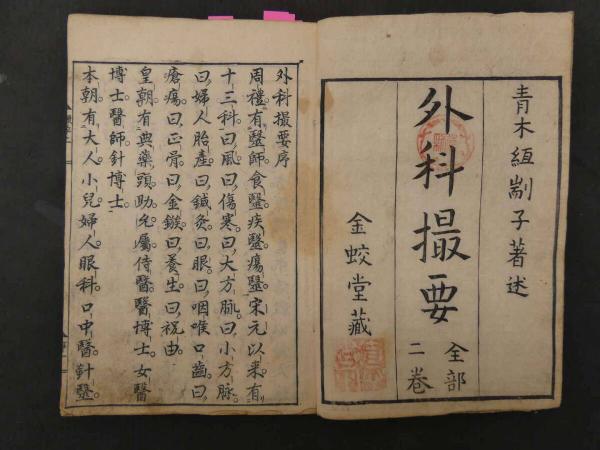 青木䋎劀子著述
外科撮要
全部
二卷
金蛟堂藏
外科撮要序
周禮有醫師食醫疾醫瘍醫宋元以來有
十三科曰風曰傷寒曰大方脉曰小方脉
曰婦人胎產曰鍼灸曰眼曰咽喉口齒曰
瘡瘍曰正骨曰金鏃曰養生曰祝由
皇朝有典藥頭助允屬侍醫醫博士女醫
博士醫師針博士
本朝有大人小兒婦人眼科口中醫針醫